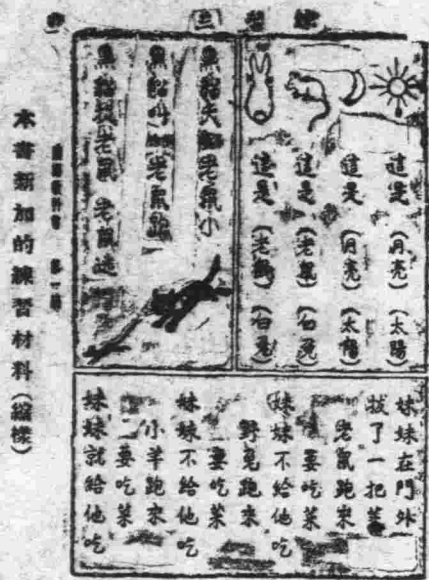 練習三
這是 (月亮) (太陽)
這是 (月亮) (太陽)
這是 (老鼠) (白兔)
這是 (老鼠) (白兔)
黑貓大 老鼠小
黑貓叫 老鼠跑
黑貓捉老鼠 老鼠逃
妹妹在門外
拔了一把菜
老鼠跑來
要吃菜
妹妹不給他吃
野兔跑來
要吃菜
妹妹不給他吃
小羊跑來
要吃菜
妹妹就給他吃
本書新加的練習材料(縮樣)